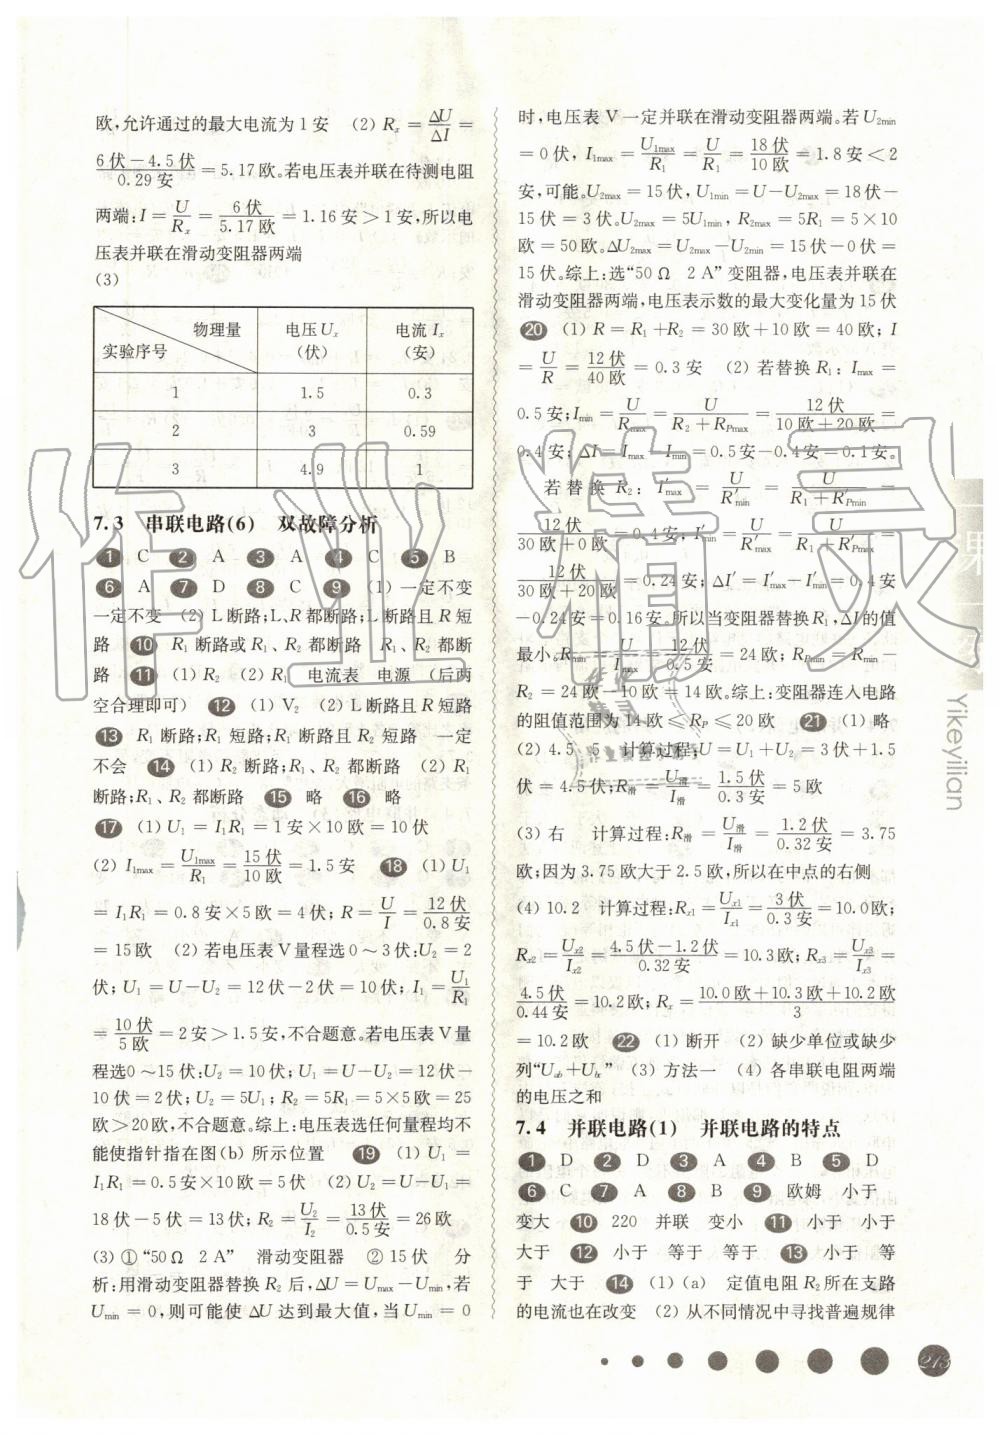 欧,允许通过的最大电流为1安 (2) Rₓ = ΔU/ΔI =
(6伏-4.5伏)/0.29安 = 5.17欧。若电压表并联在待测电阻
两端:I = U/Rₓ = 6伏/5.17欧 = 1.16安>1安,所以电
压表并联在滑动变阻器两端
(3)
物理量 电压Uₓ 电流Iₓ
实验序号 (伏) (安)
1 1.5 0.3
2 3 0.59
3 4.9 1
7.3 串联电路(6) 双故障分析
1 C 2 A 3 A 4 C 5 B
6 A 7 D 8 C 9 (1) 一定不变
一定不变 (2) L断路;L、R都断路;L断路且R短
路 10 R₁断路或R₁、R₂都断路 R₁、R₂都断
路 11 (1) R₂ (2) R₁ 电流表 电源 (后两
空合理即可) 12 (1) V₂ (2) L断路且R短路
13 R₁断路;R₁短路;R₁断路且R₂短路 一定
不会 14 (1) R₂断路;R₁、R₂都断路 (2) R₁
断路;R₁、R₂都断路 15 略 16 略
17 (1) U₁ = I₁R₁ = 1安×10欧 = 10伏
(2) I₁max = U₁max/R₁ = 15伏/10欧 = 1.5安 18 (1) U₁
= I₁R₁ = 0.8安×5欧 = 4伏; R = U/I = 12伏/0.8安
= 15欧 (2) 若电压表V量程选0~3伏:U₂ = 2
伏; U₁ = U-U₂ = 12伏-2伏 = 10伏; I₁ = U₁/R₁
= 10伏/5欧 = 2安>1.5安,不合题意。若电压表V量
程选0~15伏:U₂ = 10伏; U₁ = U-U₂ = 12伏-
10伏 = 2伏; U₂ = 5U₁; R₂ = 5R₁ = 5×5欧 = 25
欧>20欧,不合题意。综上:电压表选任何量程均不
能使指针指在图(b)所示位置 19 (1) U₁ =
I₁R₁ = 0.5安×10欧 = 5伏 (2) U₂ = U-U₁ =
18伏-5伏 = 13伏; R₂ = U₂/I₂ = 13伏/0.5安 = 26欧
(3) ① “50 Ω 2 A” 滑动变阻器 ② 15伏 分
析:用滑动变阻器替换R₂后,ΔU = Umax-Umin,若
Umin = 0,则可能使ΔU达到最大值,当Umin = 0
时,电压表V一定并联在滑动变阻器两端。若U₂min
= 0伏, I₁max = U₁max/R₁ = U/R₁ = 18伏/10欧 = 1.8安<2
安,可能。U₂max = 15伏,U₁min = U-U₂max = 18伏-
15伏 = 3伏。U₂max = 5U₁min, R₂max = 5R₁ = 5×10
欧 = 50欧。ΔU₂max = U₂max-U₂min = 15伏-0伏 =
15伏。综上:选“50 Ω 2 A”变阻器,电压表并联在
滑动变阻器两端,电压表示数的最大变化量为15伏
20 (1) R = R₁+R₂ = 30欧+10欧 = 40欧; I
= U/R = 12伏/40欧 = 0.3安 (2) 若替换R₁: Imax =
0.5安;Imin = U/Rmax = U/(R₂+RPmax) = 12伏/(10欧+20欧) =
0.4安; ΔI = Imax-Imin = 0.5安-0.4安 = 0.1安。
若替换R₂: I′max = U/R′min = U/(R₁+R′Pmin) =
12伏/(30欧+0欧) = 0.4安; I′min = U/R′max = U/(R₁+R′Pmax) =
12伏/(30欧+20欧) = 0.24安; ΔI′ = I′max-I′min = 0.4安
-0.24安 = 0.16安。所以当变阻器替换R₁,ΔI的值
最小。Rmin = U/Imax = 12伏/0.5安 = 24欧; RPmin = Rmin-
R₂ = 24欧-10欧 = 14欧。综上:变阻器连入电路
的阻值范围为14欧≤RP≤20欧 21 (1) 略
(2) 4.5 5 计算过程:U = U₁+U₂ = 3伏+1.5
伏 = 4.5伏;R滑 = U滑/I滑 = 1.5伏/0.3安 = 5欧
(3) 右 计算过程:R滑 = U滑/I滑 = 1.2伏/0.32安 = 3.75
欧;因为3.75欧大于2.5欧,所以在中点的右侧
(4) 10.2 计算过程:Rx1 = Ux1/Ix1 = 3伏/0.3安 = 10.0欧;
Rx2 = Ux2/Ix2 = (4.5伏-1.2伏)/0.32安 = 10.3欧; Rx3 = Ux3/Ix3 =
4.5伏/0.44安 = 10.2欧; Rₓ = (10.0欧+10.3欧+10.2欧)/3
= 10.2欧 22 (1) 断开 (2) 缺少单位或缺少
列“Uab+Ubc” (3) 方法一 (4) 各串联电阻两端
的电压之和
7.4 并联电路(1) 并联电路的特点
1 D 2 D 3 A 4 B 5 D
6 C 7 A 8 B 9 欧姆 小于
变大 10 220 并联 变小 11 小于 小于
大于 12 小于 等于 等于 13 小于 等
于 大于 14 (1) (a) 定值电阻R₂所在支路
的电流也在改变 (2) 从不同情况中寻找普遍规律
Yikeyilian
213
作业精灵